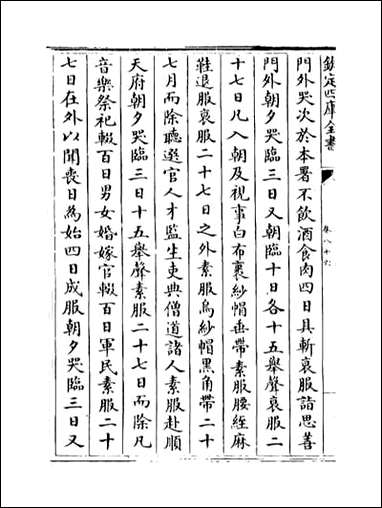 欽定四庫全書
卷八十六
門外哭次於本署不飲酒食肉四日具斬衰服詣思善
門外朝夕哭臨三日又朝臨十日各十五舉聲衰服二
十七日凡入朝及視事白布裹紗帽垂帶素服腰絰麻
鞋退服衰服二十七日之外素服烏紗帽黑角帶二十
七月而除聽選官人才監生吏典僧道諸人素服赴順
天府朝夕哭臨三日十五舉聲素服二十七日而除凡
音樂祭祀輟百日男女婚嫁官輟百日軍民素服二十
七日在外以聞喪日為始四日成服朝夕哭臨三日又